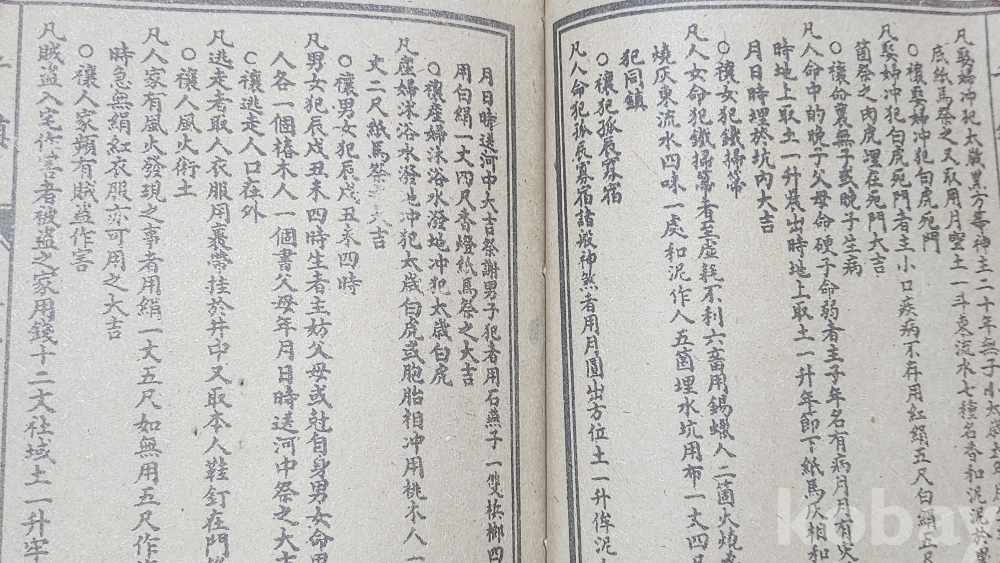 凡娶婦冲犯太歲黑方等神主二十年無子
底紙馬祭之又取用月空土一斗東流水七種名香和泥
○禳娶婦冲犯白虎死門
凡娶婦冲犯白虎死門者主小口疾病不存用紅絹五尺白絹五尺
箇祭之肉虎埋在死門大吉
○禳命裏無子或晚子生病
凡人命中的晚子父母命硬子命弱者主子年名有病月月有災
時地上取土一升晨出時地上取土一升年節下紙馬灰相和
月日時埋於坑內大吉
○禳女犯鐵掃箒
凡人女命犯鐵掃箒者至虛耗不利六畜用錫蠟人二箇火燒
燒灰東流水四味一處和泥作人五箇埋水坑用布一丈四
犯同鎮
○禳犯孤辰寡宿
凡人命犯孤辰寡宿諸般神煞者用月圓出方位土一升
月日時送河中大吉祭謝男子犯者用石燕子一雙檳榔四
用白絹一丈四尺香燈紙馬祭之大吉
○禳產婦沐浴水潑地冲犯太歲白虎
凡產婦沐浴水潑地冲犯太歲白虎或胞胎相冲用桃木人一
丈二尺紙馬祭之大吉
○禳男女犯辰戌丑未四時
凡男女犯辰戌丑未四時生者主妨父母或尅自身男女命用
人各一個椿木人一個書父母年月日時送河中祭之大吉
○禳逃走人口在外
凡逃走者取人衣服用裹帶挂於井中又取本人鞋釘在門
○禳人風火術土
凡人家有風火發現之事者用絹一丈五尺如無用五尺作
時急無絹紅衣服亦可用之大吉
○禳人家頻有賊盜作害
凡賊盜入宅作害者被盜之家用錢十二文社域土一升牢
kobay